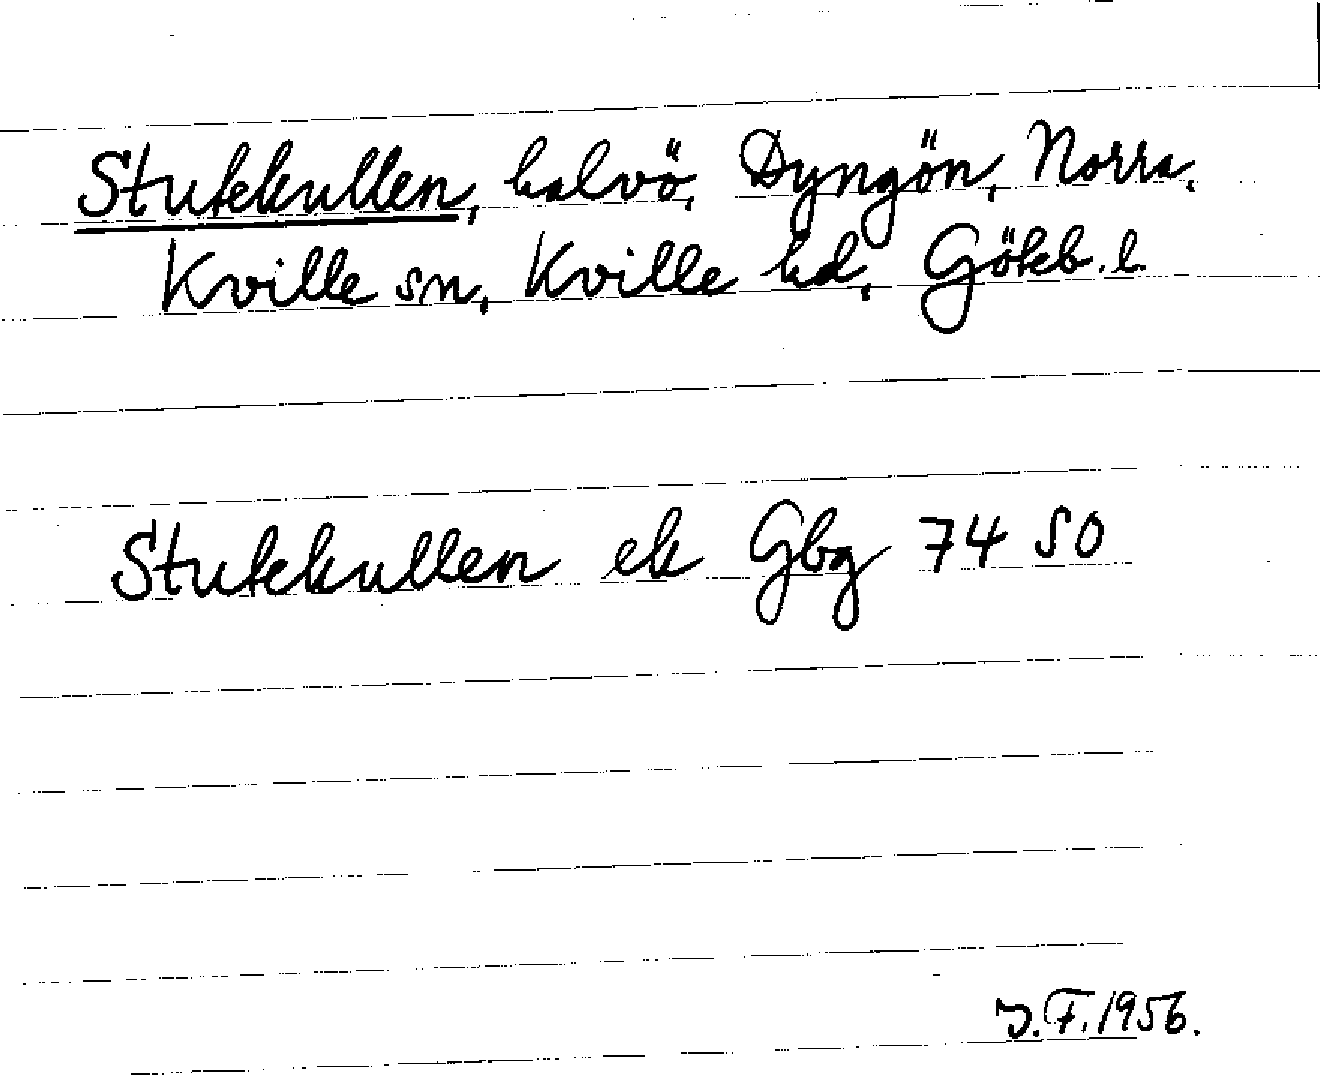 Stukekullen, halvö, Dyngön, Norra,
Kville sn, Kville hd, Göteb. l.
Stukekullen ek Gbg 74 SO
J.F. 1956.